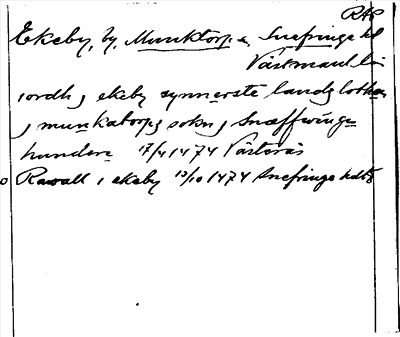 RAP
Ekeby, by, Munktorp s, Snefringe hd
Västmanl. län
iordh j ekeby synnerste landz lotthen
j munkatorpz sokn j Snæffringe
hundere 17/4 1474 Västerås
o Rawall i ekeby 13/10 1474 Snefringe hdtb